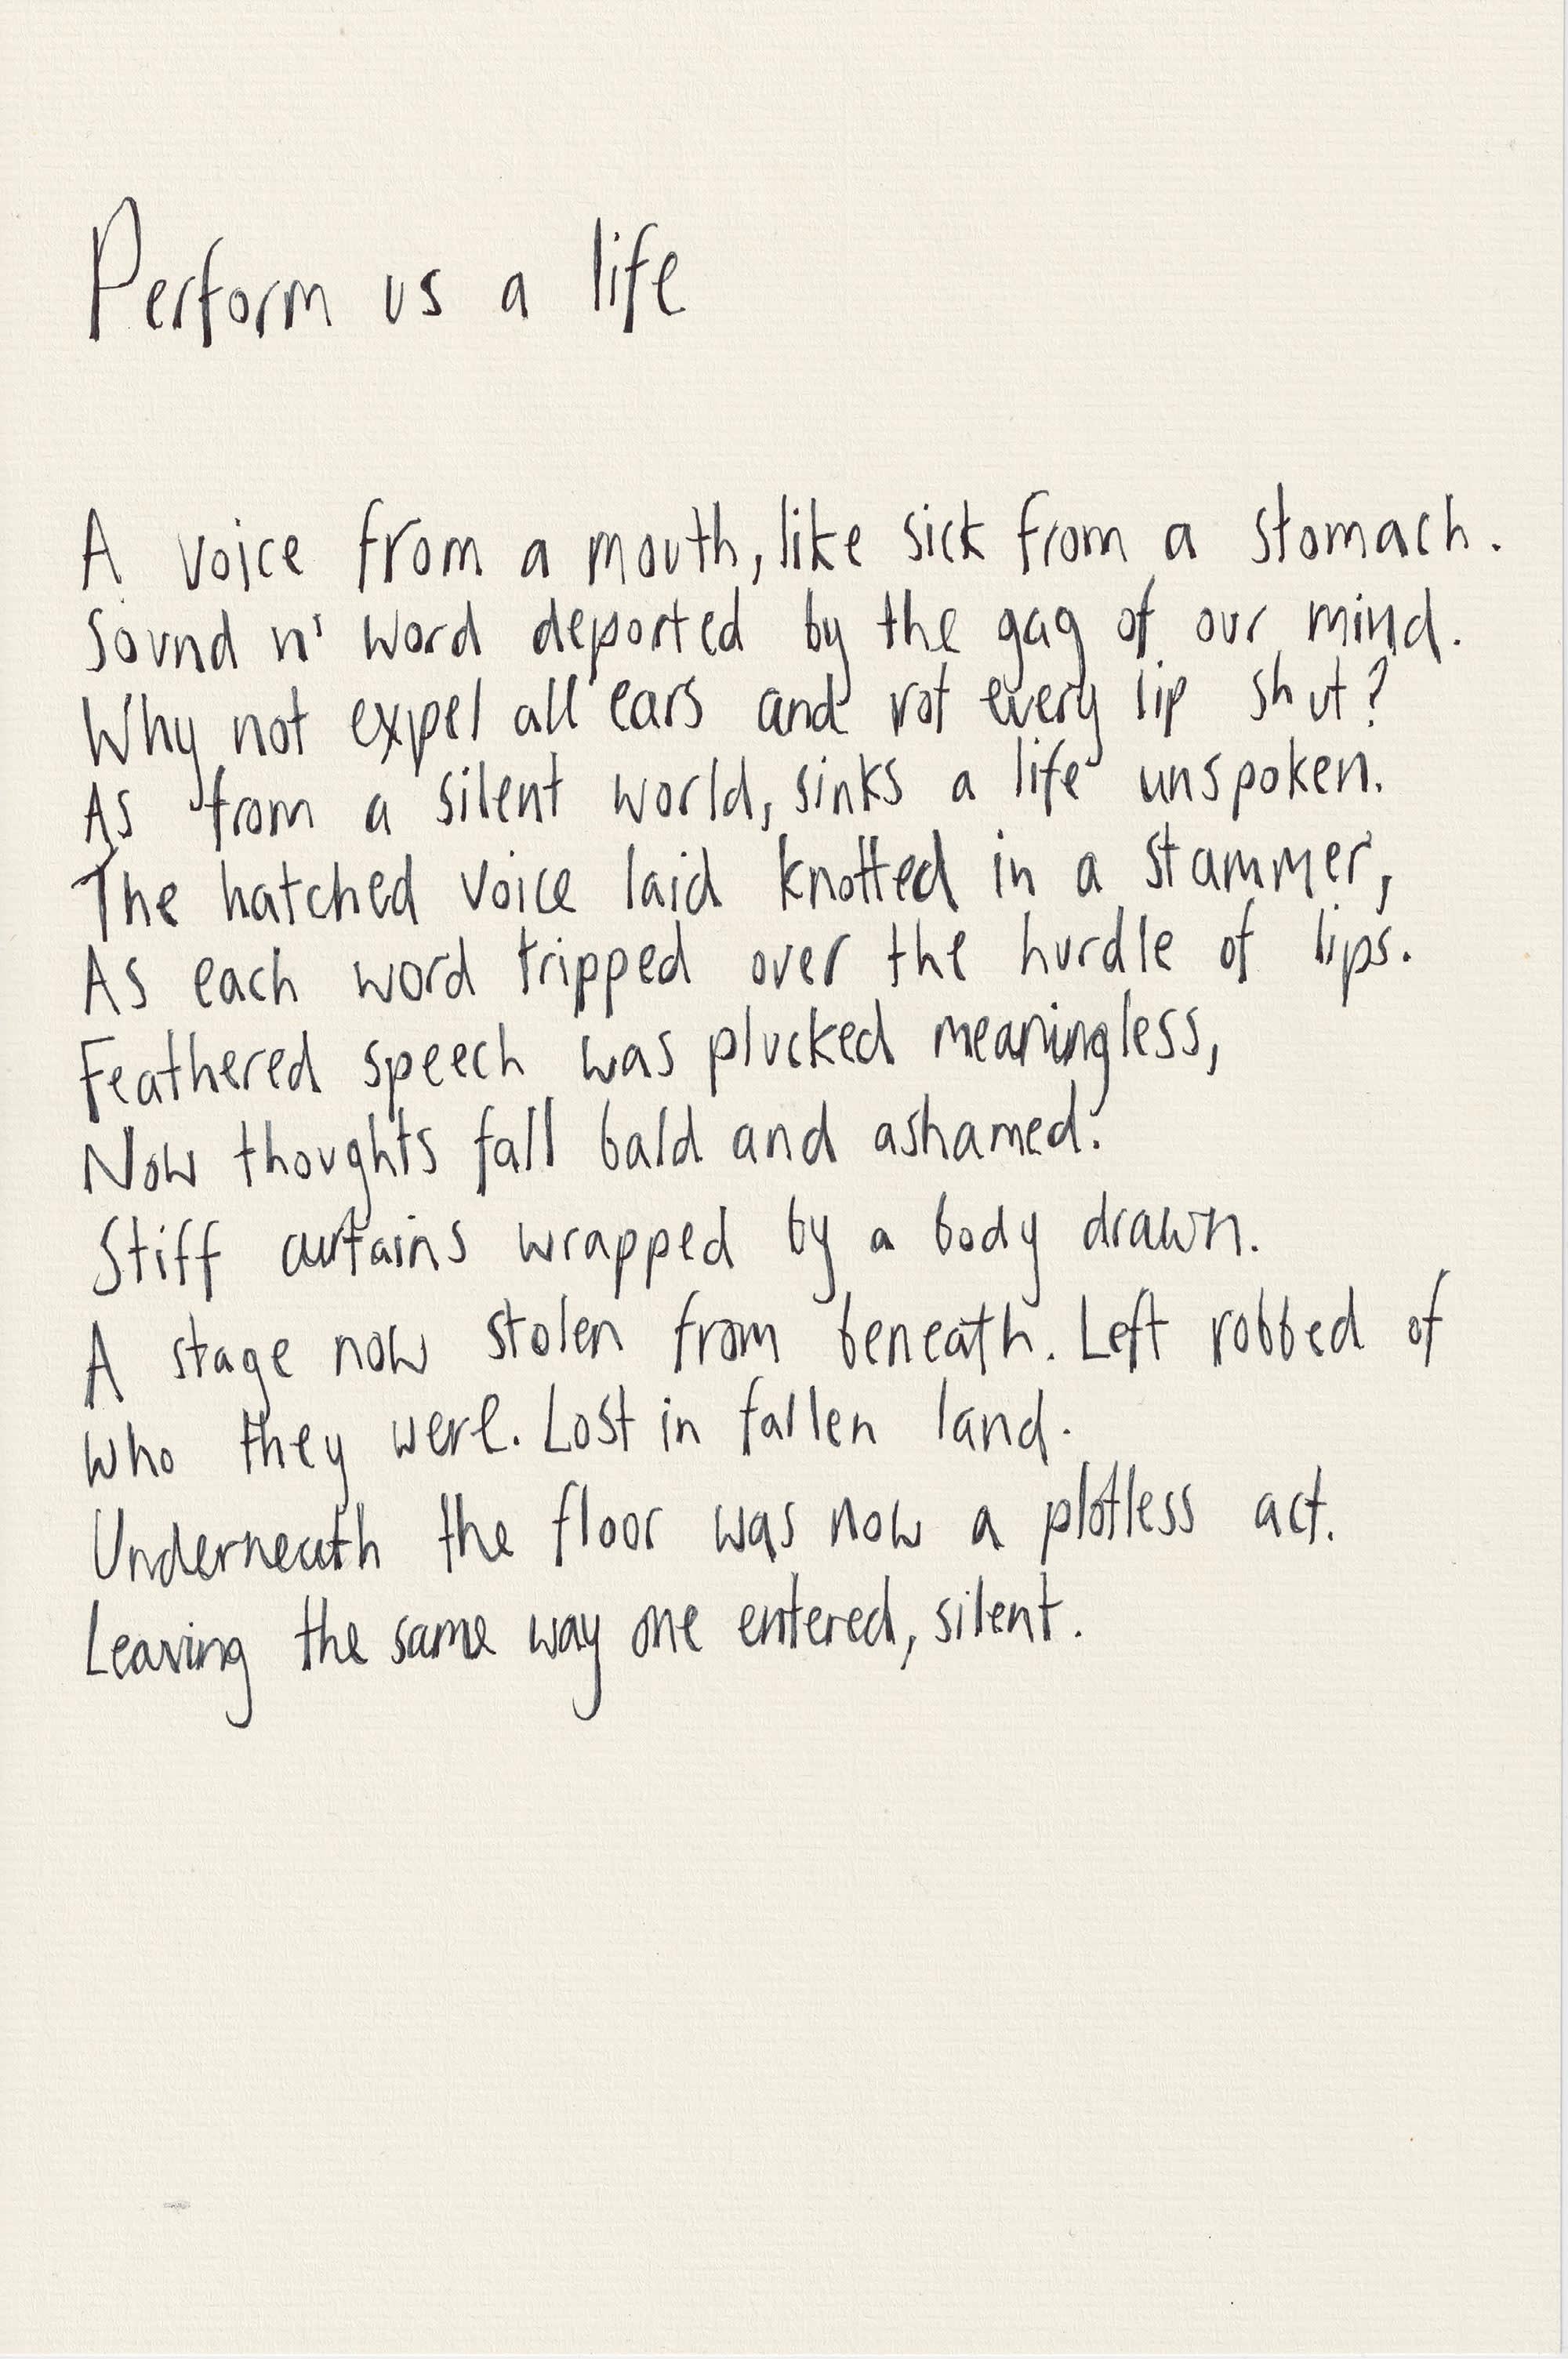 Perform us a life
A voice from a mouth, like sick from a stomach.
Sound n' word deported by the gag of our mind.
Why not expel all ears and rot every lip shut?
As from a silent world, sinks a life unspoken.
The hatched voice laid knotted in a stammer,
As each word tripped over the hurdle of lips.
Feathered speech was plucked meaningless,
Now thoughts fall bald and ashamed.
Stiff curtains wrapped by a body drawn.
A stage now stolen from beneath. Left robbed of
who they were. Lost in fallen land.
Underneath the floor was now a plotless act.
Leaving the same way one entered, silent.